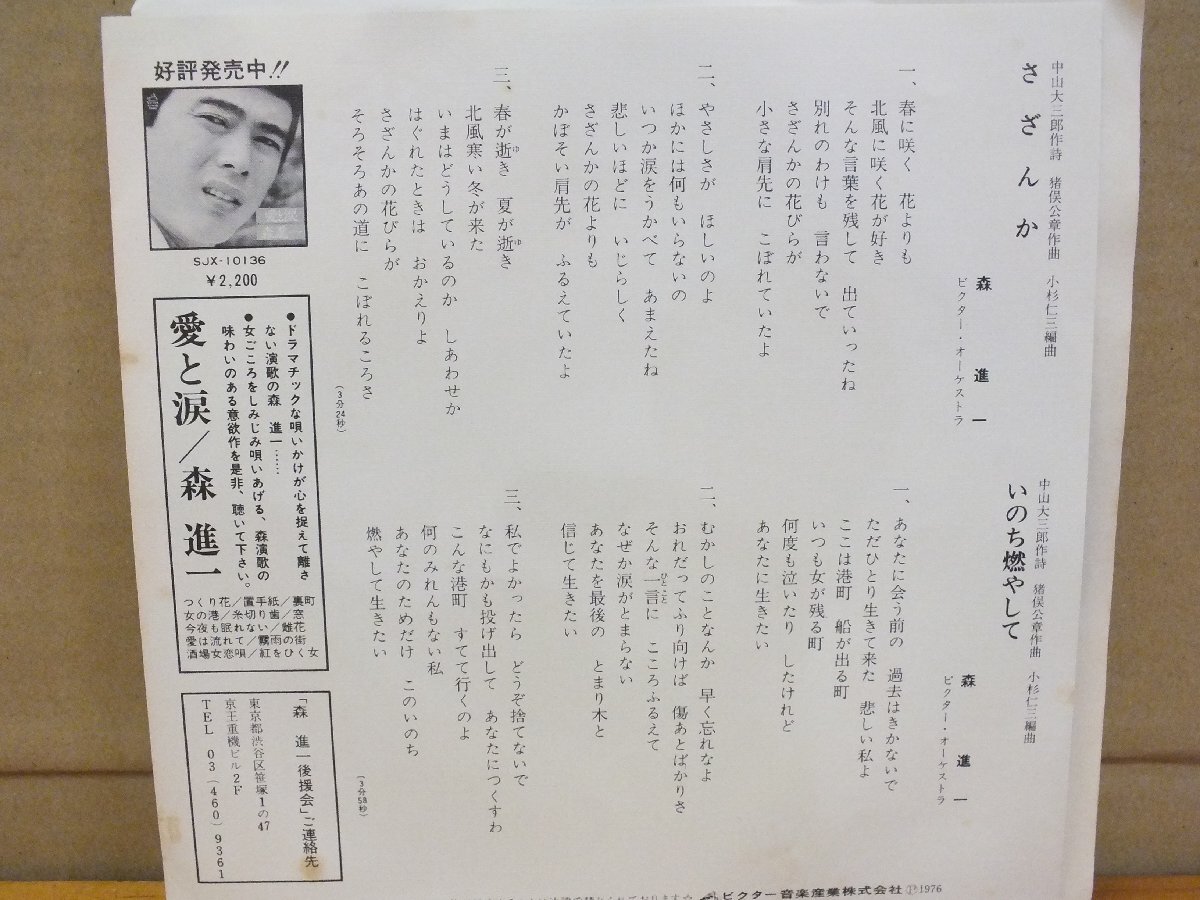 さざんか
中山大三郎作詩 猪俣公章作曲 小杉仁三編曲
森 進一
ビクター・オーケストラ
一、春に咲く 花よりも
北風に咲く花が好き
そんな言葉を残して 出ていったね
別れのわけも 言わないで
さざんかの花びらが
小さな肩先に こぼれていたよ
二、やさしさが ほしいのよ
ほかには何もいらないの
いつか涙をうかべて あまえたね
悲しいほどに いじらしく
さざんかの花よりも
かぼそい肩先が ふるえていたよ
三、春が逝き 夏が逝き
北風寒い冬が来た
いまはどうしているのか しあわせか
はぐれたときは おかえりよ
さざんかの花びらが
そろそろあの道に こぼれるころさ
(3分24秒)
いのち燃やして
中山大三郎作詩 猪俣公章作曲 小杉仁三編曲
森 進一
ビクター・オーケストラ
一、あなたに会う前の 過去はきかないで
ただひとり生きて来た 悲しい私よ
ここは港町 船が出る町
いつも女が残る町
何度も泣いたり したけれど
あなたに生きたい
二、むかしのことなんか 早く忘れなよ
おれだってふり向けば 傷あとばかりさ
そんな一言に こころふるえて
なぜか涙がとまらない
あなたを最後の とまり木と
信じて生きたい
三、私でよかったら どうぞ捨てないで
なにもかも投げ出して あなたにつくすわ
こんな港町 すてて行くのよ
何のみれんもない私
あなたのためだけ このいのち
燃やして生きたい
(3分58秒)
好評発売中!!
SJX-10136
¥2,200
●ドラマチックな唄いかけが心を捉えて離さ
ない演歌の森 進一……
●女ごころをしみじみ唄いあげる、森演歌の
味わいのある意欲作を是非、聴いて下さい。
愛と涙/森 進一
つくり花/置手紙/裏町
女の港/糸切り歯/窓
今夜も眠れない/離花
愛は流れて/霧雨の街
酒場女恋唄/紅をひく女
「森 進一後援会」ご連絡先
東京都渋谷区笹塚1の47
京王重機ビル2F
TEL 03(460)9361
ビクター音楽産業株式会社 Ⓟ1976